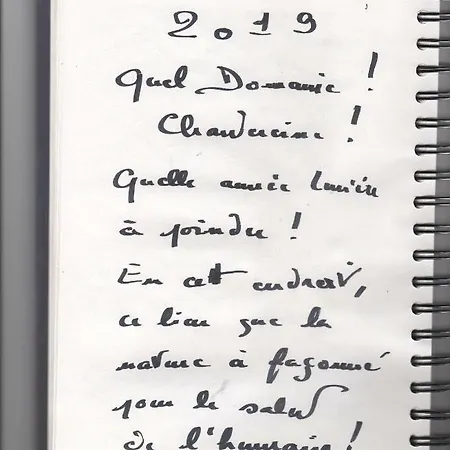 2019
Quel Domaine !
!
Quelle année
à joindre !
En cet endroit,
ce lieu que la
nature à façonné
pour le salut
de l'humain !